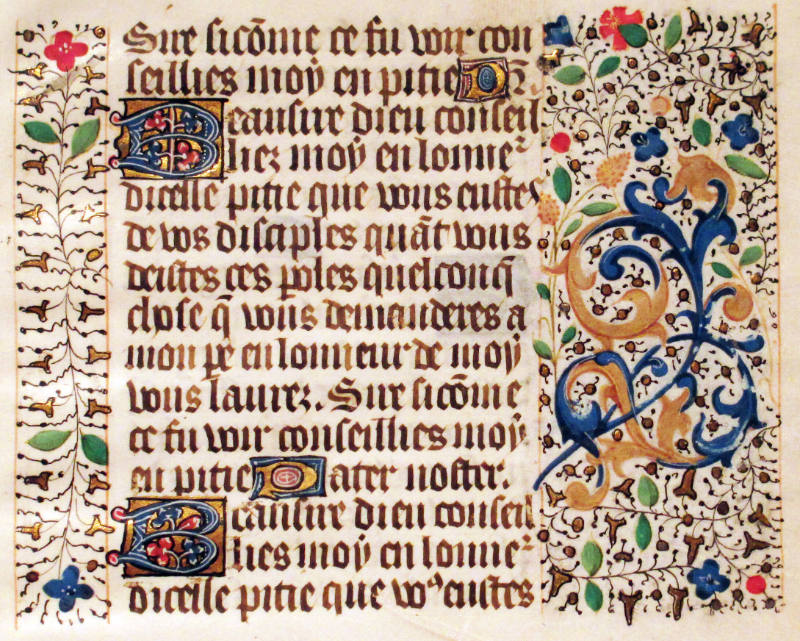 Sire sicõme ce fu voir con
seillies moÿ en pitie P̃r̃.
Beausire dieu conseil
liez moÿ en lonneᵘʳ
dicelle pitie que vous eustes
de vos disciples quãt vous
deistes ces p̱oles quelconq̃
chose q̃ vous demanderes a
mon pe̱ en lonneur de moÿ
vous laurez. Sire sicõme
ce fu voir conseillies moÿ
en pitie Pater noster.
Beausire dieu conseil
lies moÿ en lonneᵘʳ
dicelle pitie que voꝰ eustes